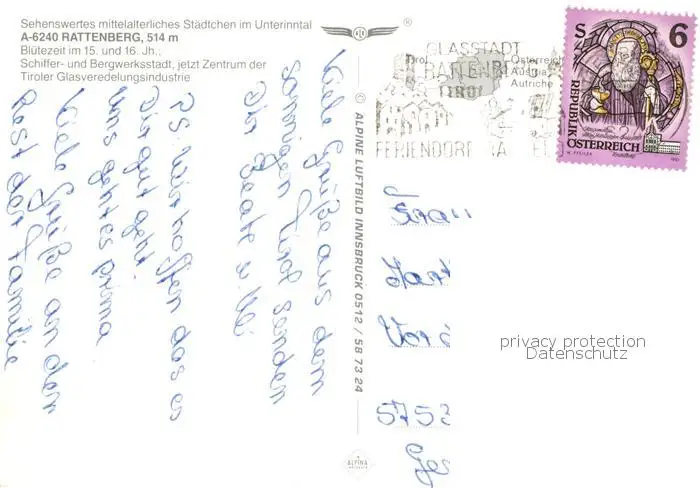 Sehenswertes mittelalterliches Städtchen im Unterinntal
A-6240 RATTENBERG, 514 m
Blütezeit im 15. und 16. Jh.,
Schiffer- und Bergwerksstadt, jetzt Zentrum der
Tiroler Glasveredelungsindustrie
®
GLASSTADT
RATTENBERG
TIROL
FERIENDORF
Tirol
Österreich
Austria
Autriche
S 6
REPUBLIK
ÖSTERREICH
© ALPINE LUFTBILD INNSBRUCK 0512 / 58 73 24
ALPINA
Viele Grüße aus dem
sonnigen Tirol senden
Dir Beate u. Uli
PS: Wir hoffen das es
Dir gut geht.
Uns geht es prima
Viele Grüße an den
Rest der Familie
Frau
575
privacy protection
Datenschutz